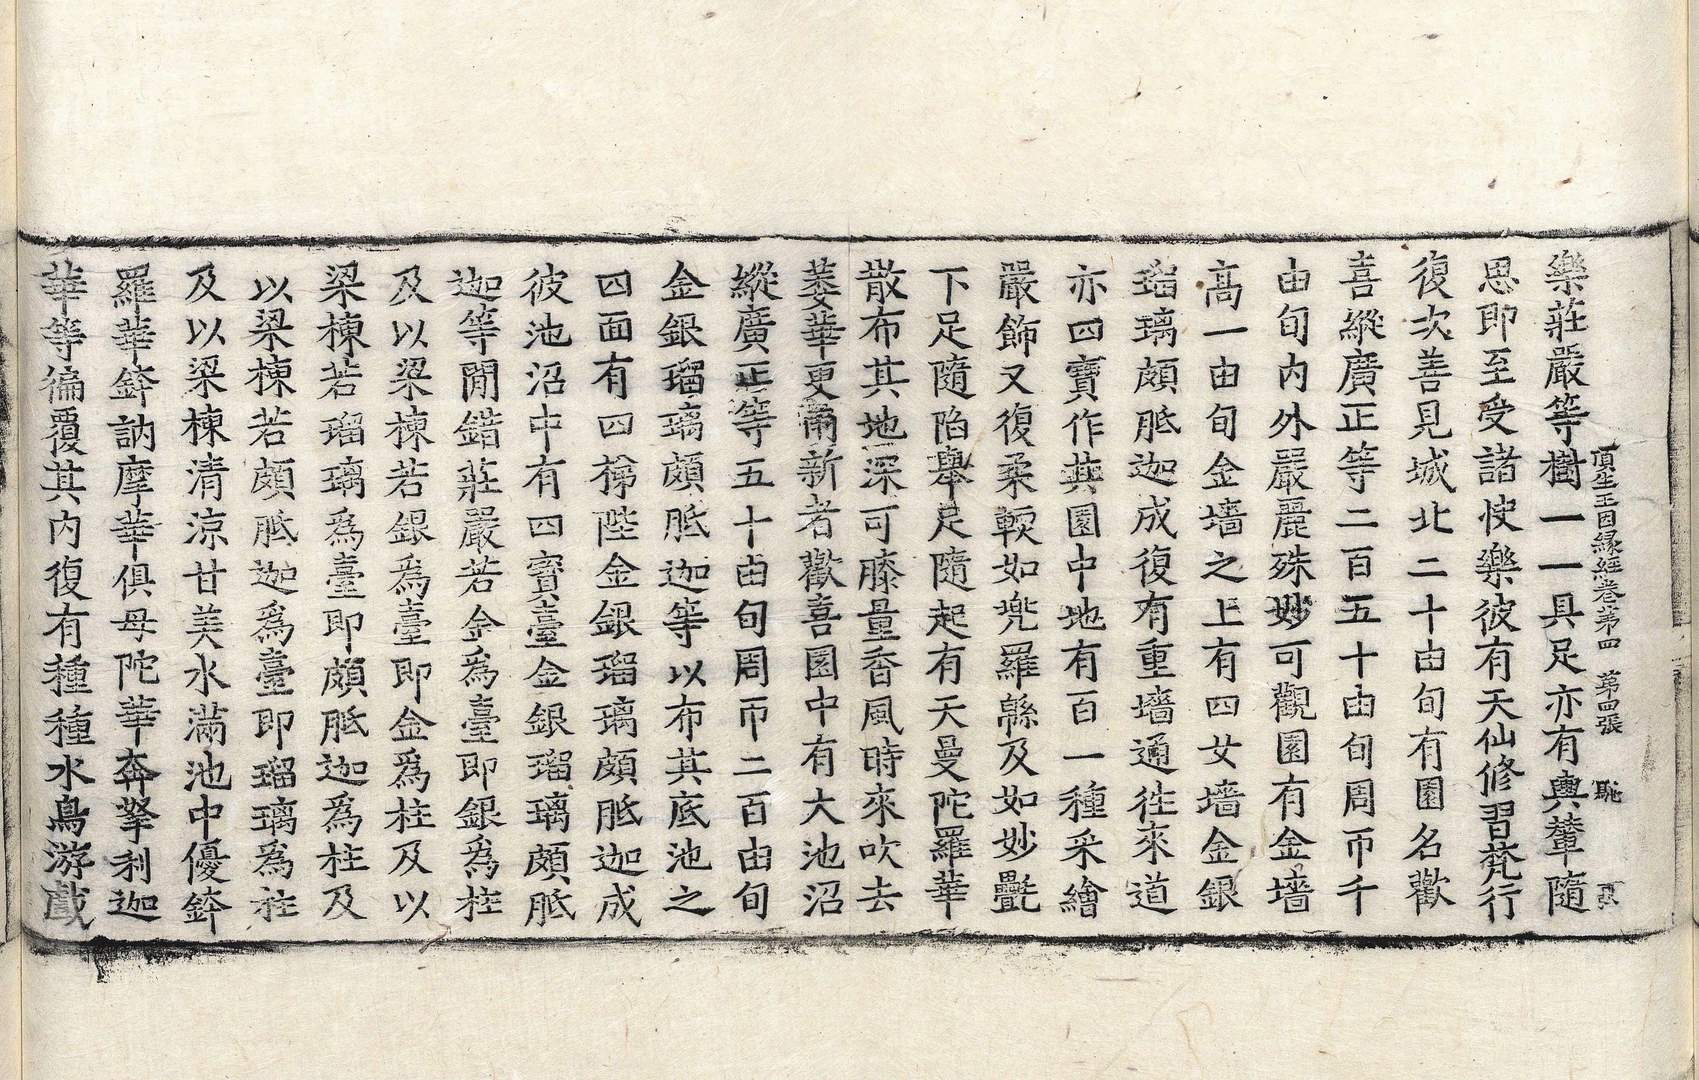 頂生王因縁經卷第四　第四張　馳
樂莊嚴等樹一一具足亦有輿輦隨
思即至受諸快樂彼有天仙修習梵行
復次善見城北二十由旬有園名歡
喜縱廣正等二百五十由旬周帀千
由旬内外嚴麗殊妙可觀園有金墻
高一由旬金墻之上有四女墻金銀
瑠璃頗胝迦成復有重墻通徃來道
亦四寶作其園中地有百一種采繪
嚴飾又復柔軟如兠羅緜及如妙㲲
下足隨陷舉足隨起有天曼陀羅華
散布其地深可膝量香風時來吹去
萎華更雨新者歡喜園中有大池沼
縱廣正等五十由旬周帀二百由旬
金銀瑠璃頗胝迦等以布其底池之
四面有四梯陛金銀瑠璃頗胝迦成
彼池沼中有四寳臺金銀瑠璃頗胝
迦等閒錯莊嚴若金為臺即銀為柱
及以梁棟若銀為臺即金為柱及以
梁棟若瑠璃為臺即頗胝迦為柱及
以梁棟若頗胝迦為臺即瑠璃為柱
及以梁棟清涼甘美水滿池中優鉢
羅華鉢訥摩華俱母陀華奔拏利迦
華等徧覆其内復有種種水鳥游戲